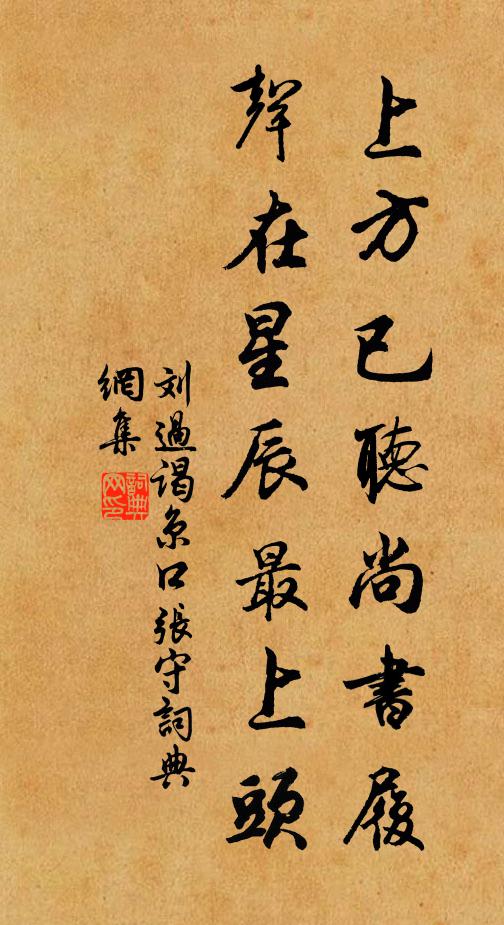 上方已聽尚書履
聲在星辰最上頭
刘過謁京口張守詞典
網集
詞典網印